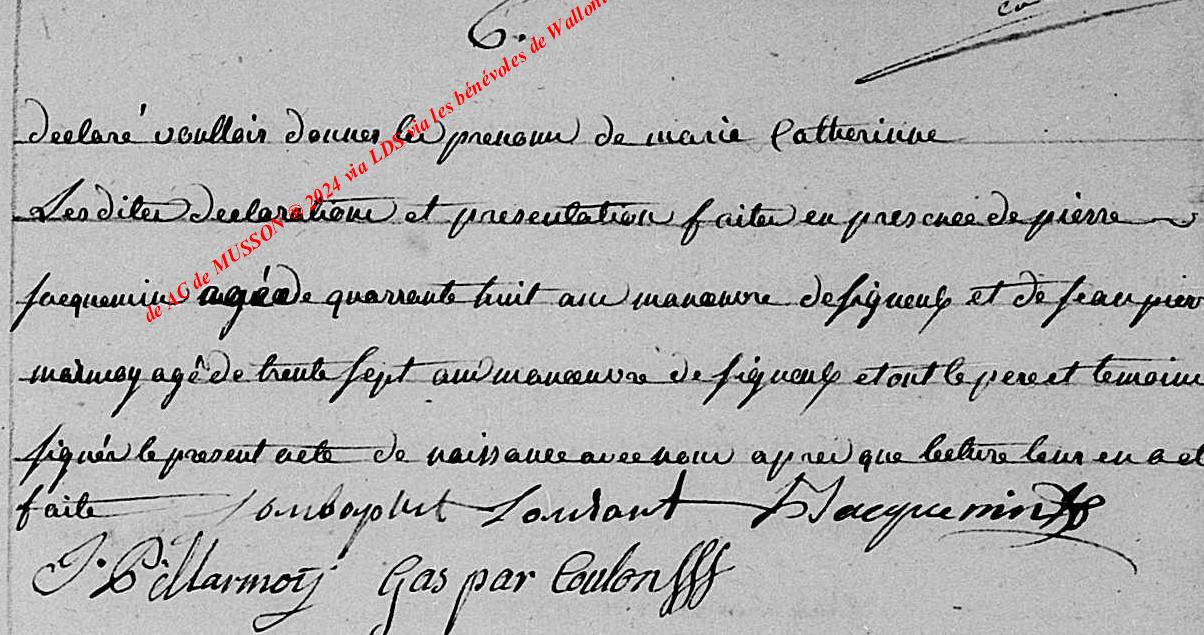 6.
declaré voulloir donner les prenoms de marie Catherinne
Les dites declarations et presentation faites en presence de pierre
jacquemin agée de quarrante huit ans manœuvre de signeulx et de jean pier
marmoy agé de trente sept ans manœuvre de signeulx et ont le pere et temoins
signés le present acte de naissance avec nous aprés que lecture leur en a et
faite Jonbaptist Lonsant P Jacquemin
J. P. Marmoÿ Gaspar Coulon
de AG de MUSSON © 2024 via LDS via les bénévoles de Walloni